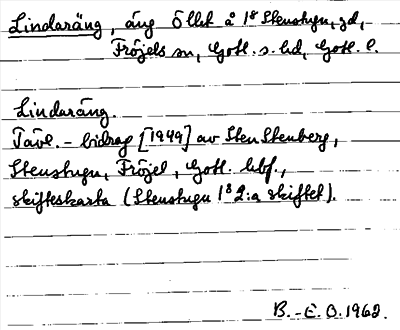 Lindaräng, äng Ö llst å 1⁸ Stenstugu, gd,
Fröjels sn, Gotl. s. hd, Gotl. l.
Lindaräng.
Tävl. - bidrag [1949] av Sten Stenberg,
Stenstugu, Fröjel, Gotl. hbf.,
skifteskarta (Stenstugu 1⁸ 2:a skiftet).
B.-E. O. 1962.